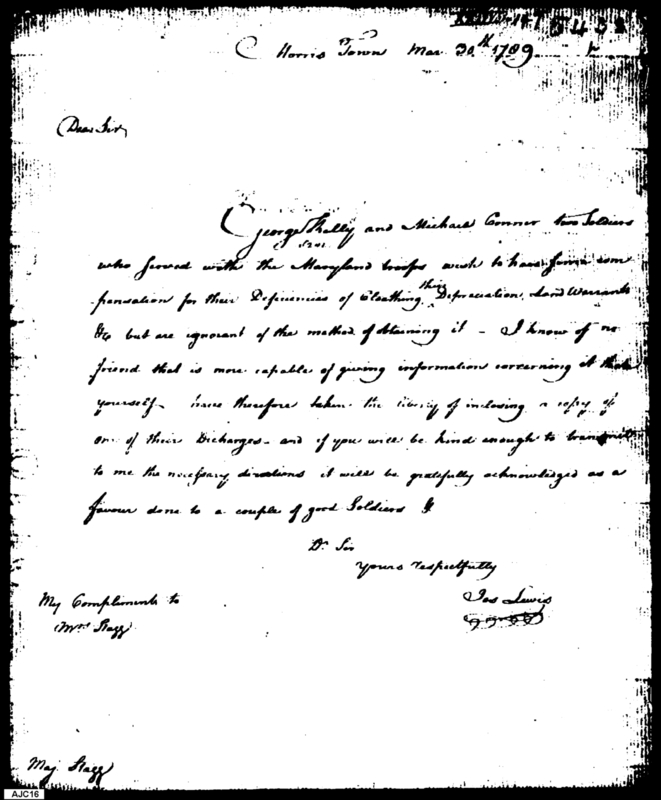 Morris Town Mar 30th 1789
Dear Sir
George Kelly and Michael Connor two Soldiers
who served with the Maryland troops wish to have some com
pensation for their Deficiencies of Cloathing their Depreciation, Land Warrants
&c but are ignorant of the method of obtaining it - I know of no
friend that is more capable of giving information concerning it than
yourself - have therefore taken the liberty of inclosing a copy of
one of their Discharges - and if you will be kind enough to transmit
to me the necessary directions it will be gratefully acknowledged as a
favour done to a couple of good Soldiers &
Dr Sir
Yours respectfully
Jos Lewis
My Compliments to
Mrs Stagg
Maj Stagg
AJC16